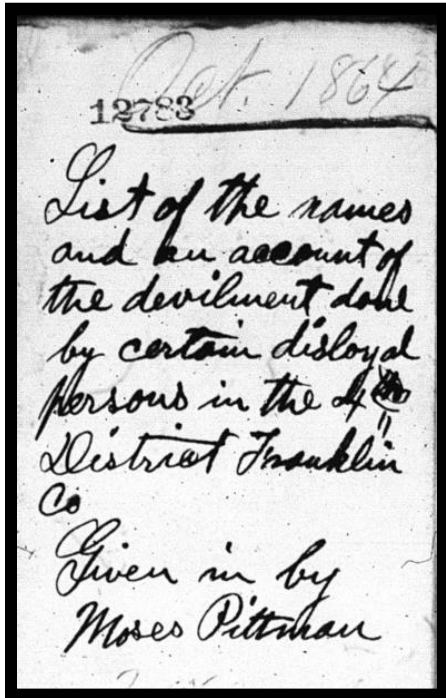 Oct. 1864
12783
List of the names
and an account of
the devilment done
by certain disloyal
persons in the 4th
District Franklin
Co
Given in by
Moses Pittman